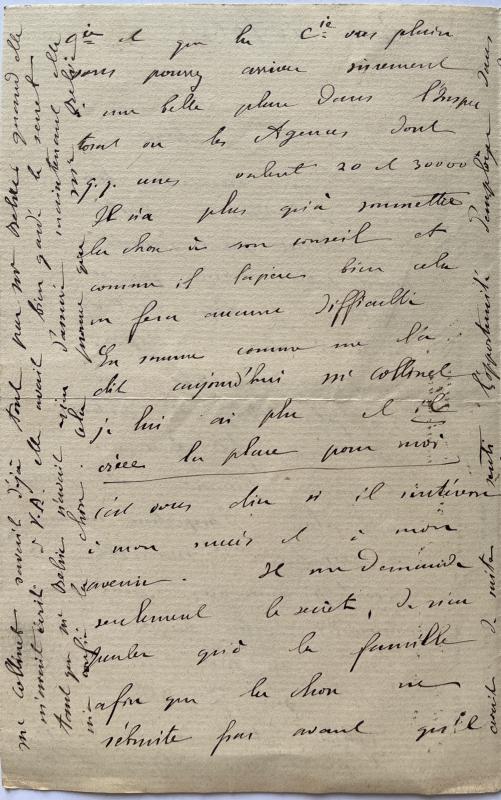 que et que la Cie vous plaira
vous pourrez arriver sûrement
à une belle place dans l'Inspec
torat ou les Agences dont
q.q. unes valent 20 et 30000
Il n'a plus qu'à soumettre
la chose à son conseil et
comme il l'espère bien cela
ne fera aucune difficulté
En somme comme me l'a
dit aujourd'hui Mr Collinet
je lui ai plu et il
créee la place pour moi
c'est vous dire si il s'intéresse
à mon succès et à mon
avenir. Il me demande
seulement le secret, de n'en
parler qu'à la famille
afin que la chose ne
s'ébruite pas avant qu'il
avait de suite senti l'opportunité d'employer dans
Mr Collinet savait déjà tout par Mr quand elle
m'avait écrit à V.A. elle avait bien gardé le secret
tant que Mr n'avait rien maintenant elle
m'a confié la chose